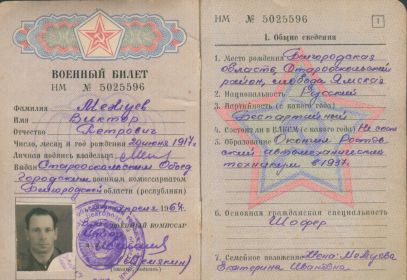 ВОЕННЫЙ БИЛЕТ
НМ № 5025596
Фамилия Межуев
Имя Виктор
Отчество Петрович
Число, месяц и год рождения 20 июня 1917 г.
Личная подпись владельца
Выдан Старооскольским Объед.
Городским военным комиссариатом
Белгородской области (республики)
апреля 1964 г.
Военный комиссар
НМ № 5025596
1
I. Общие сведения
1. Место рождения Белгородская
область, Старооскольский
район, слобода Ямская
2. Национальность Русский
3. Партийность (с какого года)
Беспартийный
4. Состоит ли в ВЛКСМ (с какого года) Не сост.
5. Образование Окончил Ростов
ский автомеханический
техникум в 1937
6. Основная гражданская специальность
Шофер
7. Семейное положение Жена Межуева
Екатерина Ивановна